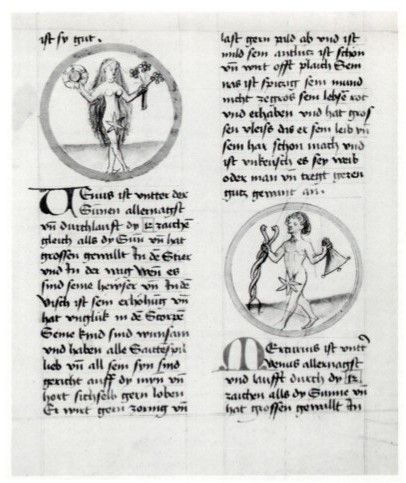 ist sy gut.
Venus ist vntter der
Sunen allernagst
vn̄ durchlaufft dy 12 zaichē
gleich alls dy Sun vn̄ hat
grossen gewallt In der Stier
vnd In der wag Wen̄ es
sind seine hewser vn̄ In dē
visch ist sein erhöhūg vn̄
hat vnglük in dē Scorpē
Seine kind sind wunsam
vnd haben alle
lieb vn̄ all sein syn sind
gericht auff dy myn vn̄
hort sichselb gern loben
Er wirt gern zornig vn̄
last gern pald ab vnd ist
mild sein antlutz ist schon
vn̄ wirt offt plaich Sein
nas ist spiczig sein mund
nicht zegros sein lebsē rot
vnd erhaben vnd hat gros
sen vleiss das er sein leib vn̄
sein har schon mach vnd
ist vnkeusch es sey weib
oder man vn̄ tregt geren
gutz gewant an.
Mercurius ist vntt
venus allernagst
vnd laufft durch dy 12
zaichen alls dy Sunne vn̄
hat grossen gewallt In